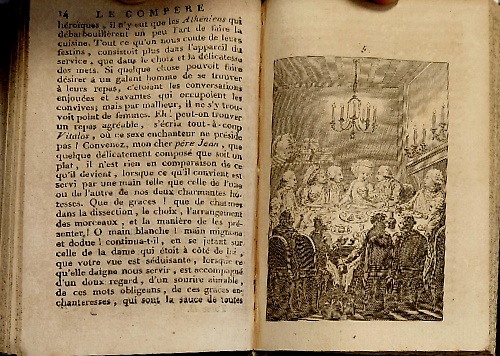 14 LE COMPERE
héroïques, il n'y eut que les Athéniens qui
débarbouillèrent un peu l'art de faire la
cuisine. Tout ce qu'on nous conte de leurs
festins, consistoit plus dans l'appareil du
service, que dans le choix et la délicatesse
des mets. Si quelque chose pouvoit faire
désirer à un galant homme de se trouver
à leurs repas, c'étoient les conversations
enjouées et savantes qui occupoient les
convives; mais par malheur, il ne s'y trou-
voit point de femmes. Eh! peut-on trouver
un repas agréable, s'écria tout-à-coup
Vitalos, où ce sexe enchanteur ne préside
pas! Convenez, mon cher père Jean, que
quelque délicatement composé que soit un
plat, il n'est rien en comparaison de ce
qu'il devient, lorsque ce qu'il convient est
servi par une main telle que celle de l'une
ou de l'autre de nos deux charmantes hô-
tesses. Que de graces! que de charmes
dans la dissection, le choix, l'arrangement
des morceaux, et la manière de les pré-
senter! O main blanche! main mignone
et dodue! continua-t-il, en se jetant sur
celle de la dame qui étoit à côté de lui,
que votre vue est séduisante, lorsque ce
qu'elle daigne nous servir, est accompagné
d'un doux regard, d'un sourire aimable,
de ces mots obligeans, de ces graces en-
chanteresses, qui sont la sauce de toutes